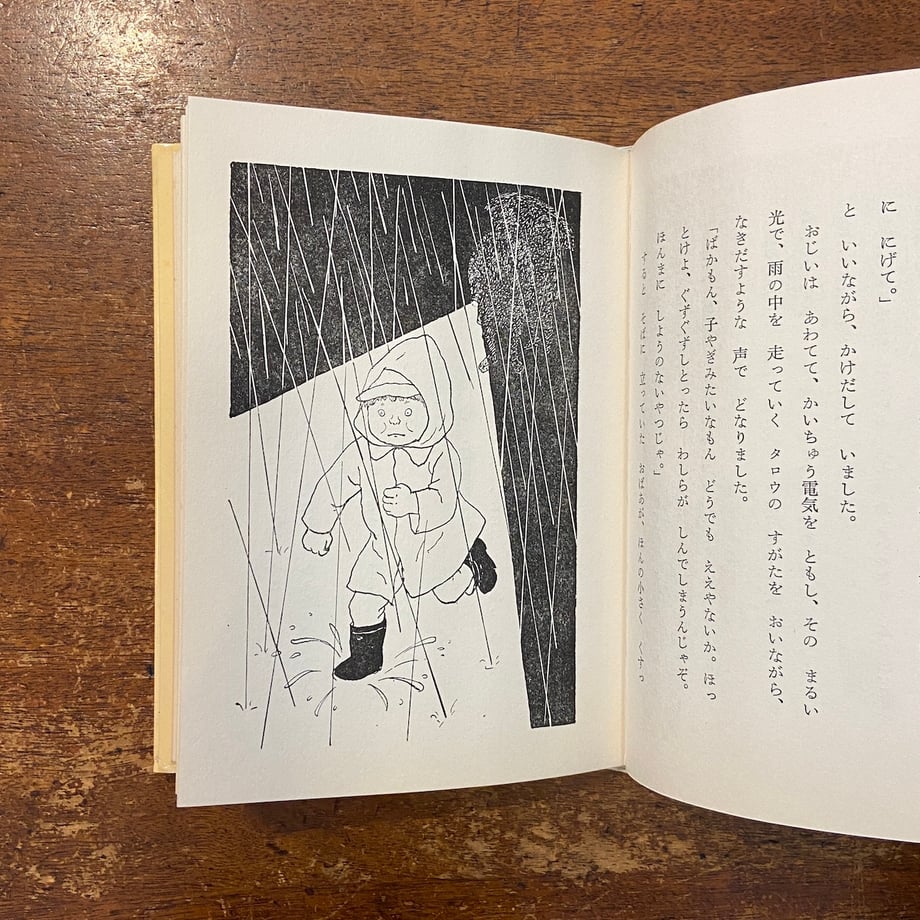 に　にげて。」
と　いいながら、かけだして　いました。
おじいは　あわてて、かいちゅう電気を　ともし、その　まるい
光で、雨の中を　走っていく　タロウの　すがたを　おいながら、
なきだすような　声で　どなりました。
「ばかもん、子やぎみたいなもん　どうでも　ええやないか。ほっ
とけよ、ぐずぐずしとったら　わしらが　しんでしまうんじゃぞ。
ほんまに　しようのないやつじゃ。」
すると　そばに　立っていた　おばあが、ほんの小さく　くすっ